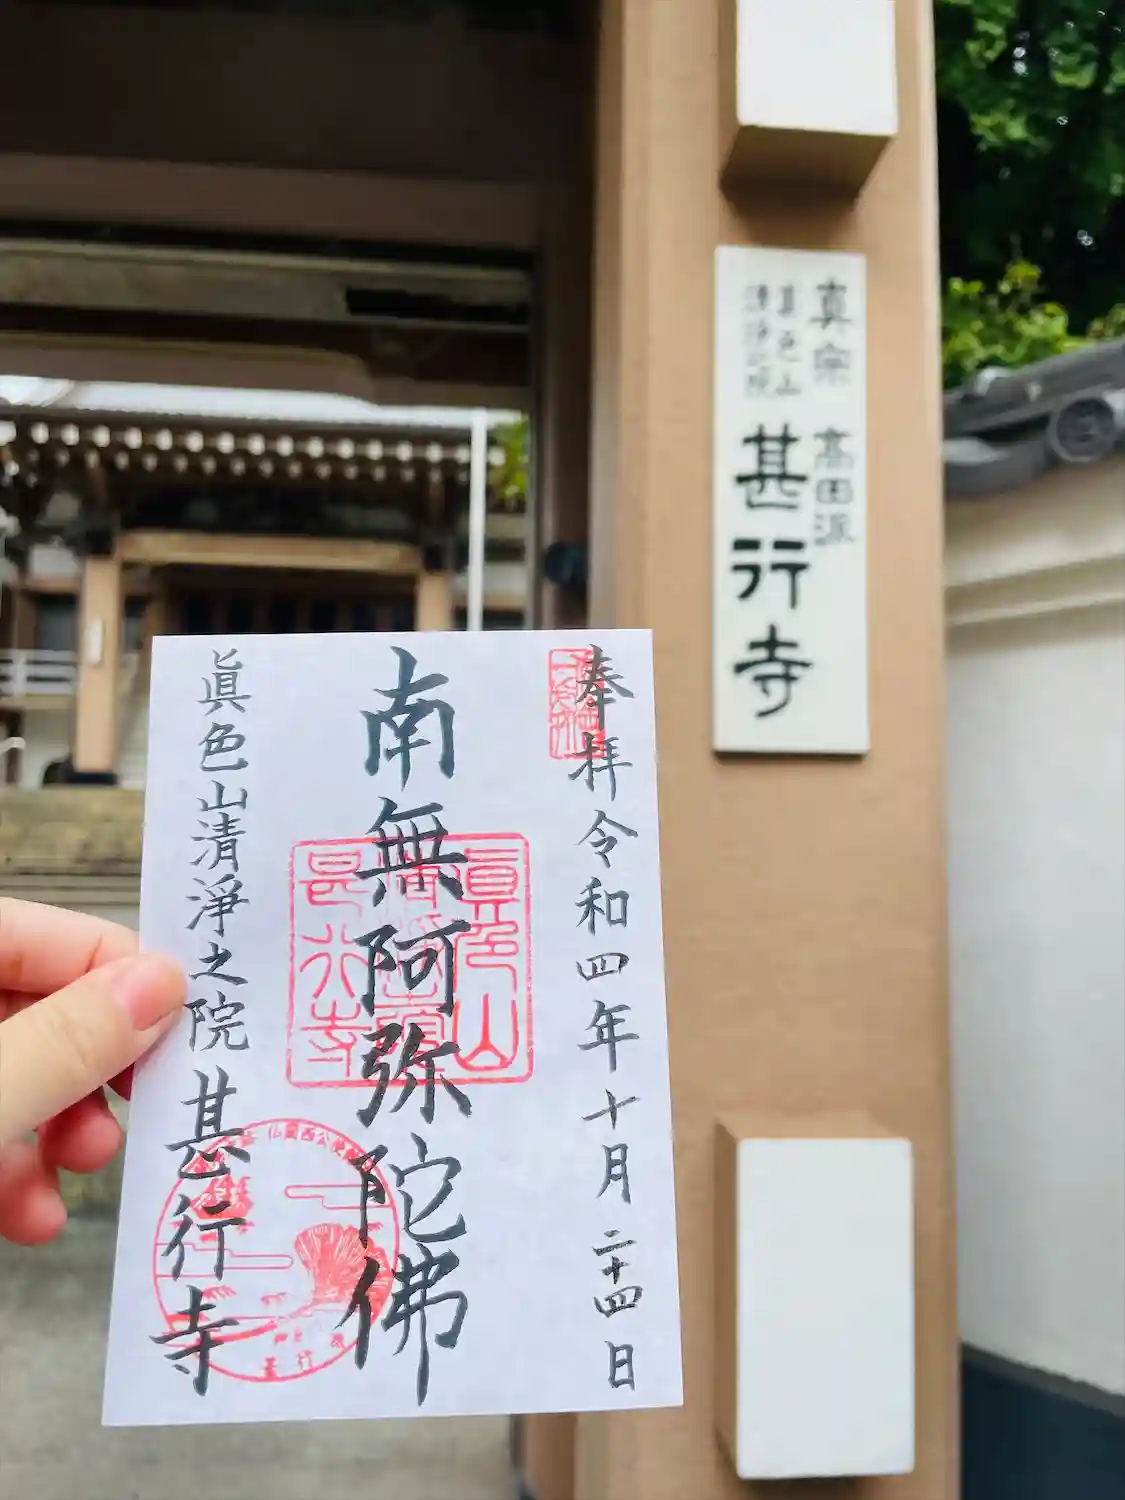 真宗 高田派
真色山
清浄之院
甚行寺
奉拝 令和四年十月二十四日
南無阿弥陀佛
眞色山清淨之院 甚行寺
眞色山
甚行寺
仏蘭西公使館
甚行寺